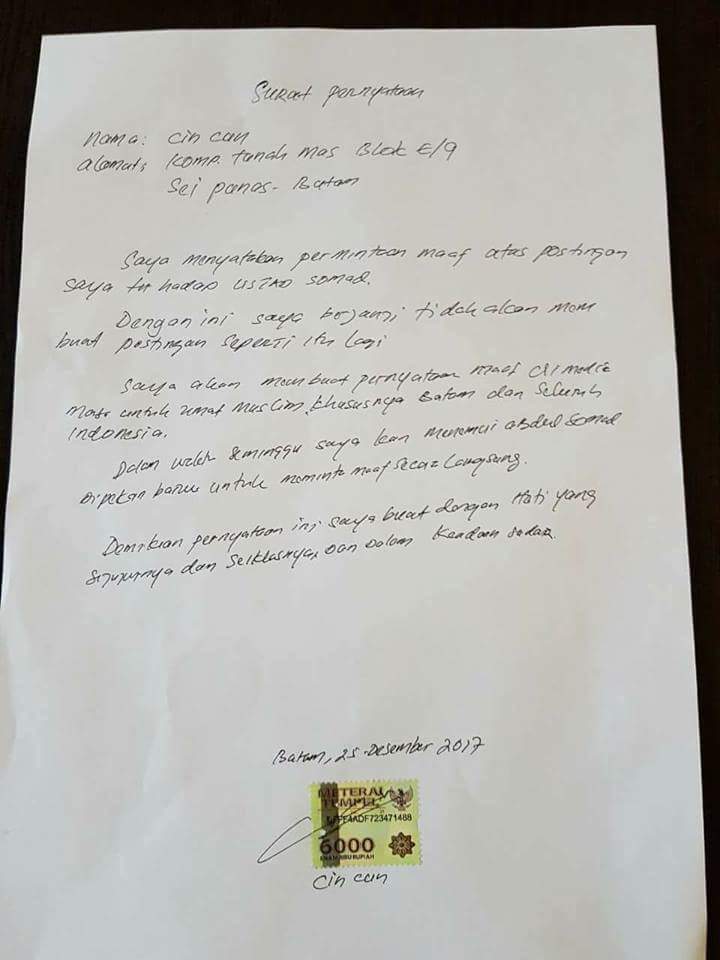 Surat pernyataan
Nama: Cin can
Alamat: Komp. tanah mas Blok E/9
Sei panas - Batam
Saya menyatakan permintaan maaf atas postingan
saya terhadap USTAD Somad.
Dengan ini saya berjanji tidak akan mem
buat postingan seperti itu lagi
Saya akan membuat pernyataan maaf di media
untuk umat muslim, khususnya Batam dan Seluruh
Indonesia.
Dalam seminggu saya kan menemui abdul Somad
Dipekan baru untuk meminta maaf Secara Langsung.
Demikian pernyataan ini saya buat dengan Hati yang
dan Dan Dalam Keadaan sadar.
Batam, 25-Desember 2017
METERAI
TEMPEL
ADF723471488
6000
ENAM RIBU RUPIAH
Cin can